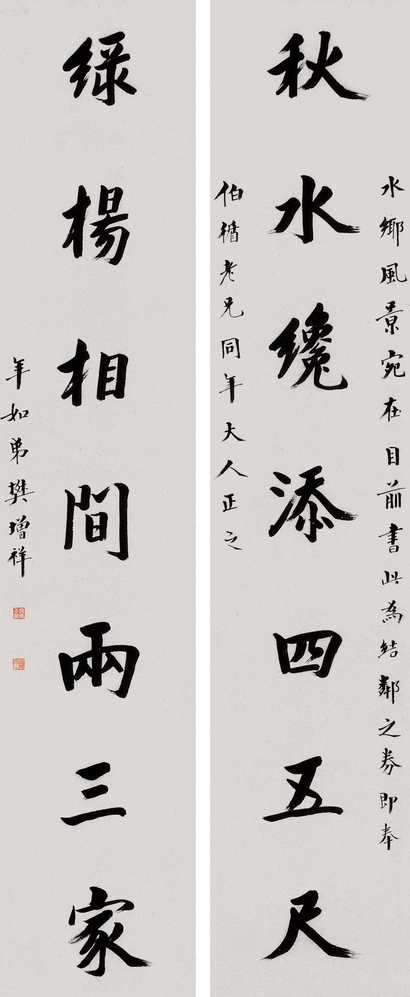 水鄉風景宛在目前書此為結鄰之券即奉
秋水纔添四五尺
伯循老兄同年大人正之
綠楊相間兩三家
年如弟樊增祥